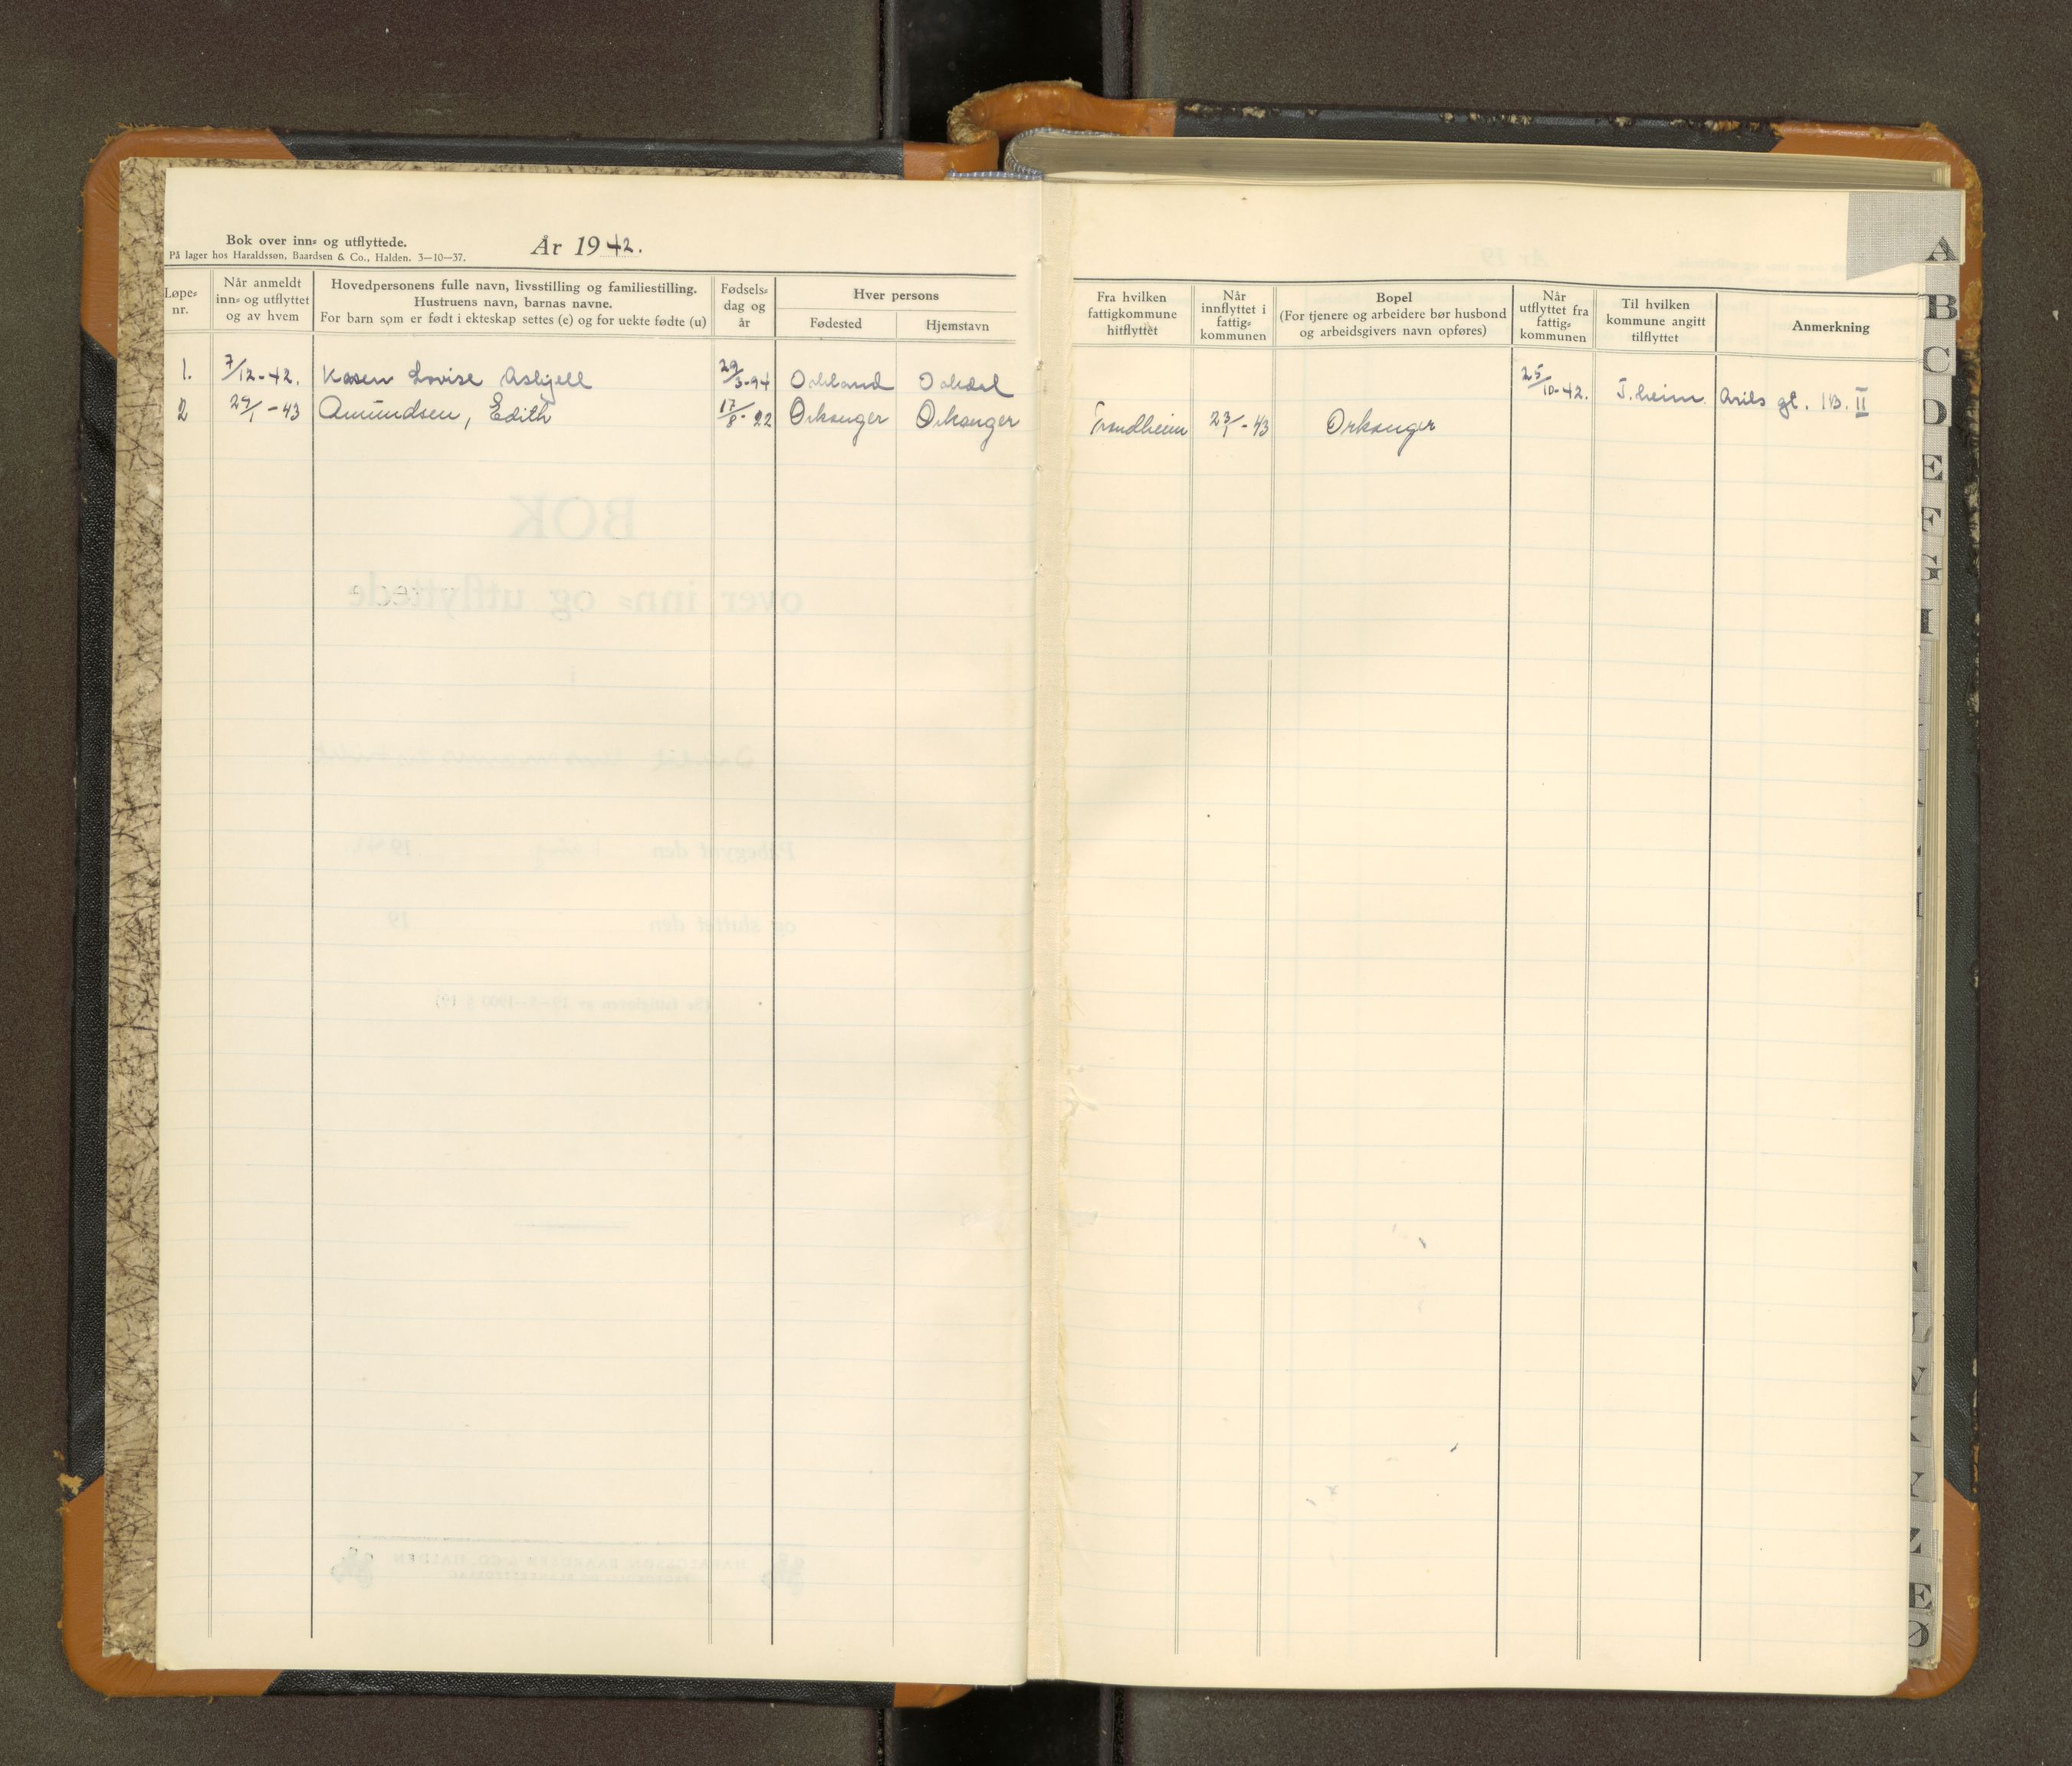 Bok over inn= og utflyttede.
På lager hos Haraldssøn, Baardsen & Co., Halden. 3—10—37.
År 1942.
Løpe= nr.
Når anmeldt inn= og utflyttet og av hvem
Hovedpersonens fulle navn, livsstilling og familiestilling.
Hustruens navn, barnas navne.
For barn som er født i ekteskap settes (e) og for uekte fødte (u)
Fødsels= dag og år
Hver persons
Fødested
Hjemstavn
Fra hvilken fattigkommune hitflyttet
Når innflyttet i fattig= kommunen
Bopel
(For tjenere og arbeidere bør husbond og arbeidsgivers navn opføres)
Når utflyttet fra fattig= kommunen
Til hvilken kommune angitt tilflyttet
Anmerkning
1. 7/12-42. Kasen Lovise Asbjell 29/3-94 25/10-42. T.heim. gt. 1B. II
2 29/1-43 Amundsen, Edith 17/8-22 Orkanger Orkanger Trondheim 23/1-43 Orkanger
A
B
C
D
E
F
G
H
V
Y
Z
Æ
Ø